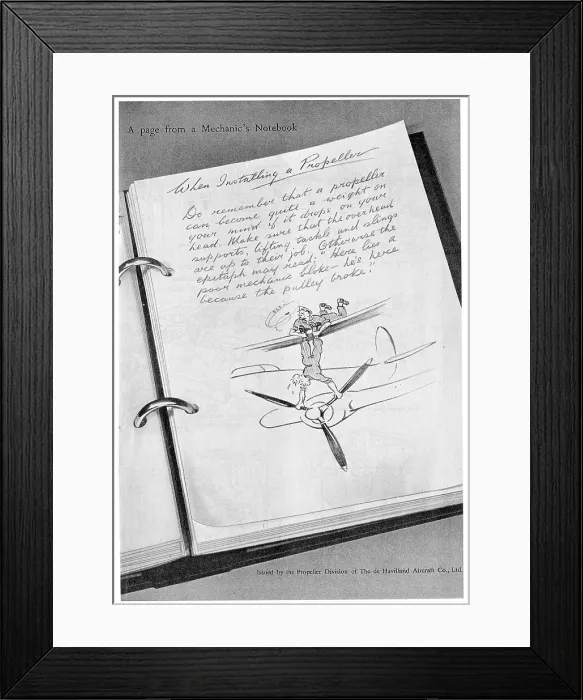 A page from a Mechanic's Notebook
When Installing a Propeller
Do remember that a propeller
can become quite a weight on
your mind if it drops on your
head. Make sure that the overhead
supports, lifting tackle and slings
are up to their job. Otherwise the
epitaph may read: "Here lies a
poor mechanic bloke – he's here
because the pulley broke."
Issued by the Propeller Division of The de Havilland Aircraft Co., Ltd.